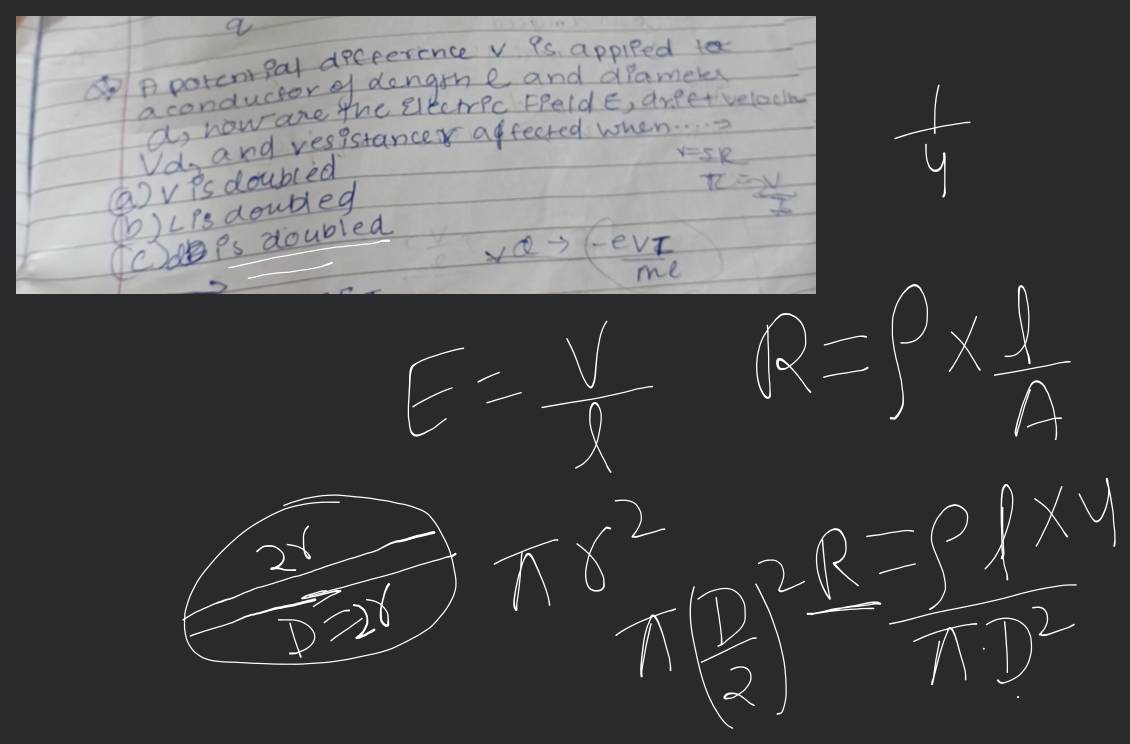 a
Q A potential difference V is applied to
a conductor of length l and diameter
d, how are the Electric Field E, drift velocity
Vd, and resistance r affected when....→
(a) V is doubled
V=IR
R=V/I
(b) L is doubled
(c) d is doubled
vd → -eVτ/ml
1/4
E = V/l
R = ρ × l/A
2r
D=2r
πr²
π(D/2)²
R = ρl×4/π.D²